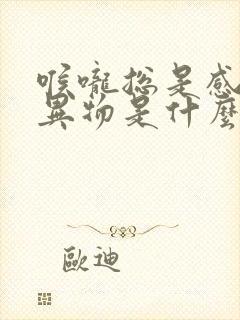 喉嚨総是感
異物是什麼
歐迪